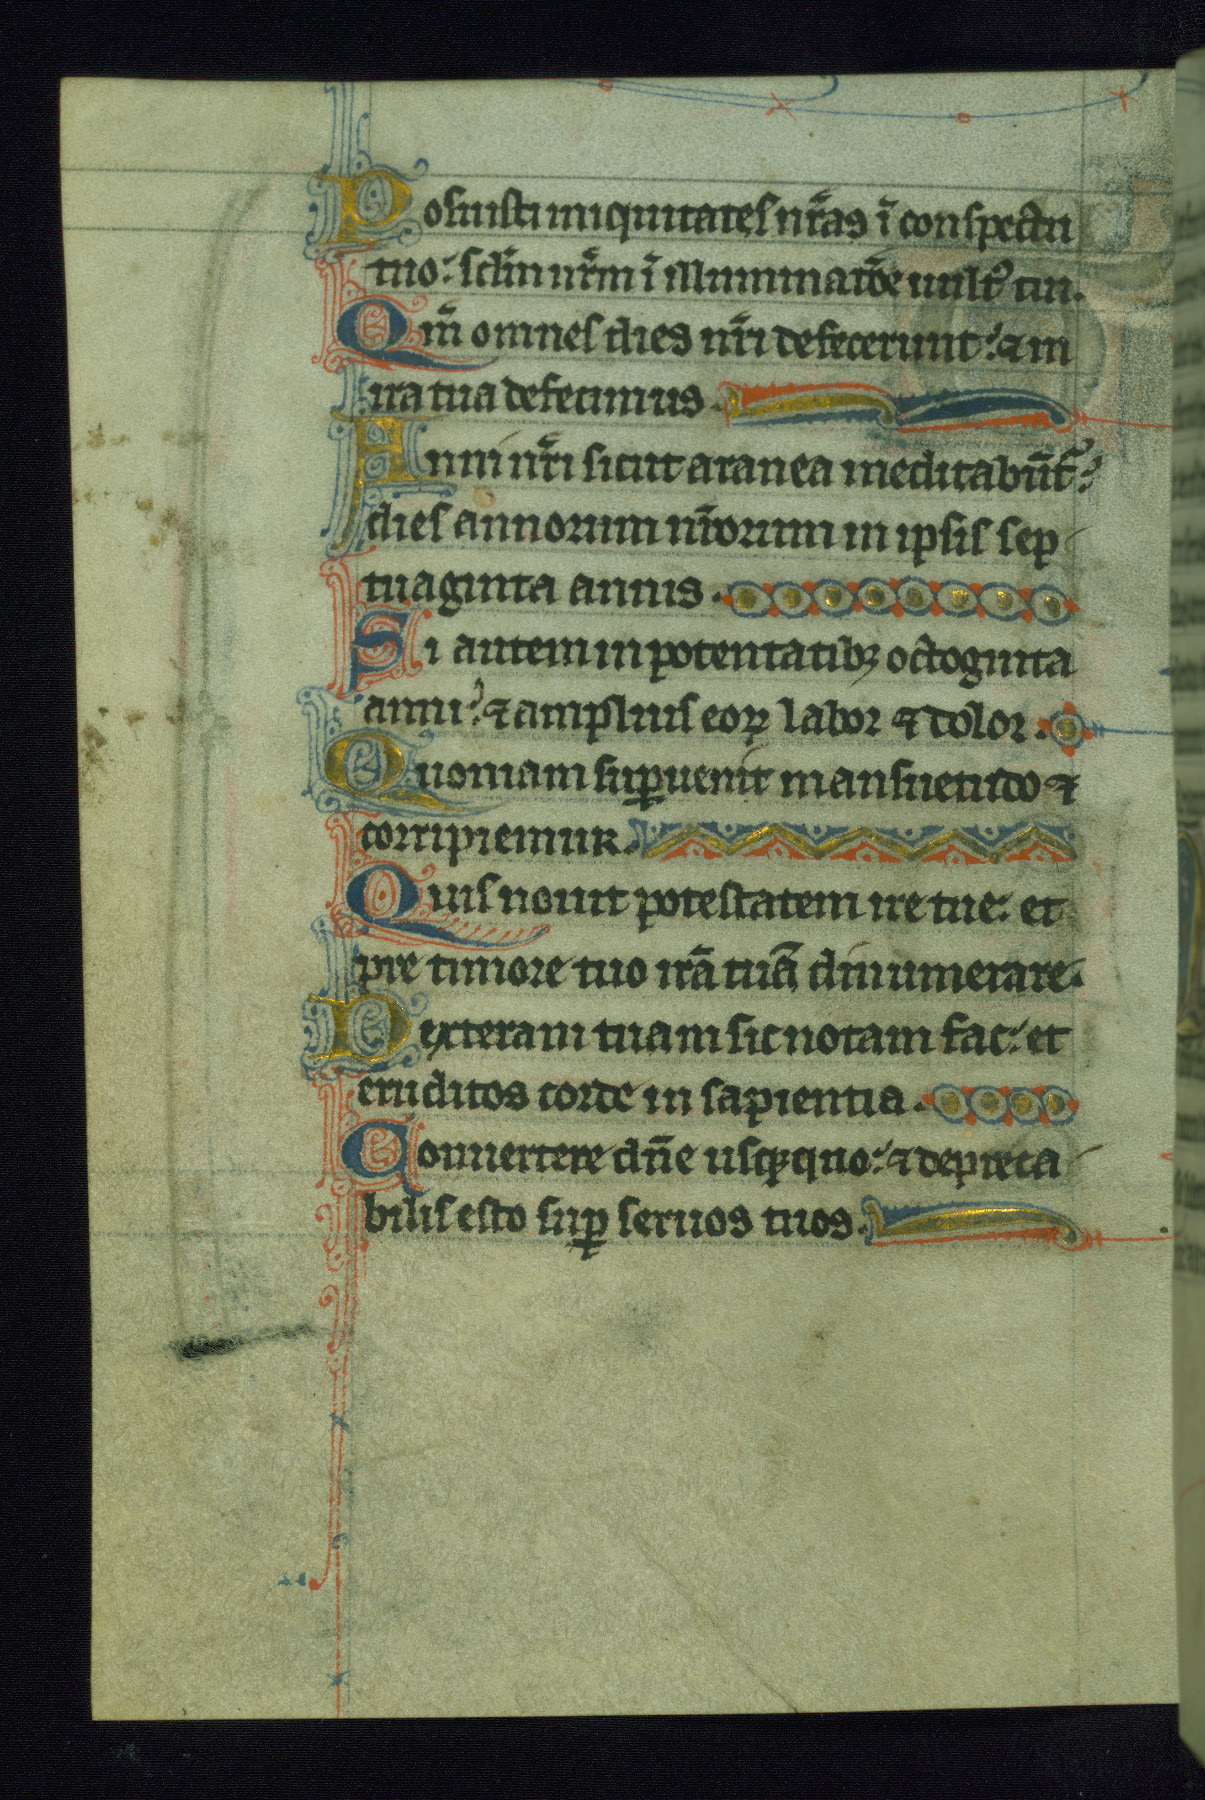 Posuisti iniquitates nr̄as ī conspectu
tuo: sclm̄ nr̄m ī illuminatōe uult᾽ tui.
Qm̄ omnes dies nr̄i defecerunt: ⁊ in
ira tua defecimus.
Anni nr̄i sicut aranea meditabūt᾽:
dies annorum nr̄orum in ipsis sep
tuaginta annis.
Si autem in potentatibꝫ octoginta
anni: ⁊ amplius eoꝝ labor ⁊ dolor.
Quoniam suꝑuenit mansuetudo ⁊
corripiemur.
Quis nouit potestatem ire tue: et
pre timore tuo irā tuā dinumerare.
Dexteram tuam sic notam fac: et
eruditos corde in sapientia.
Conuertere dn̄e usqꝫquo: ⁊ depreca
bilis esto suꝑ seruos tuos.